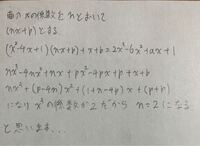 商の xの係数を nとおいて
(nx+p)とする.
(x²-4x+1)(nx+p)+x+b=2x³-6x²+ax+1
nx³-4nx²+nx+px²-4px+p+x+b
nx³+(p-4n)x²+(1+n-4p)x+(p+b)
になり x³の係数が2だから n=2になる
と思います...